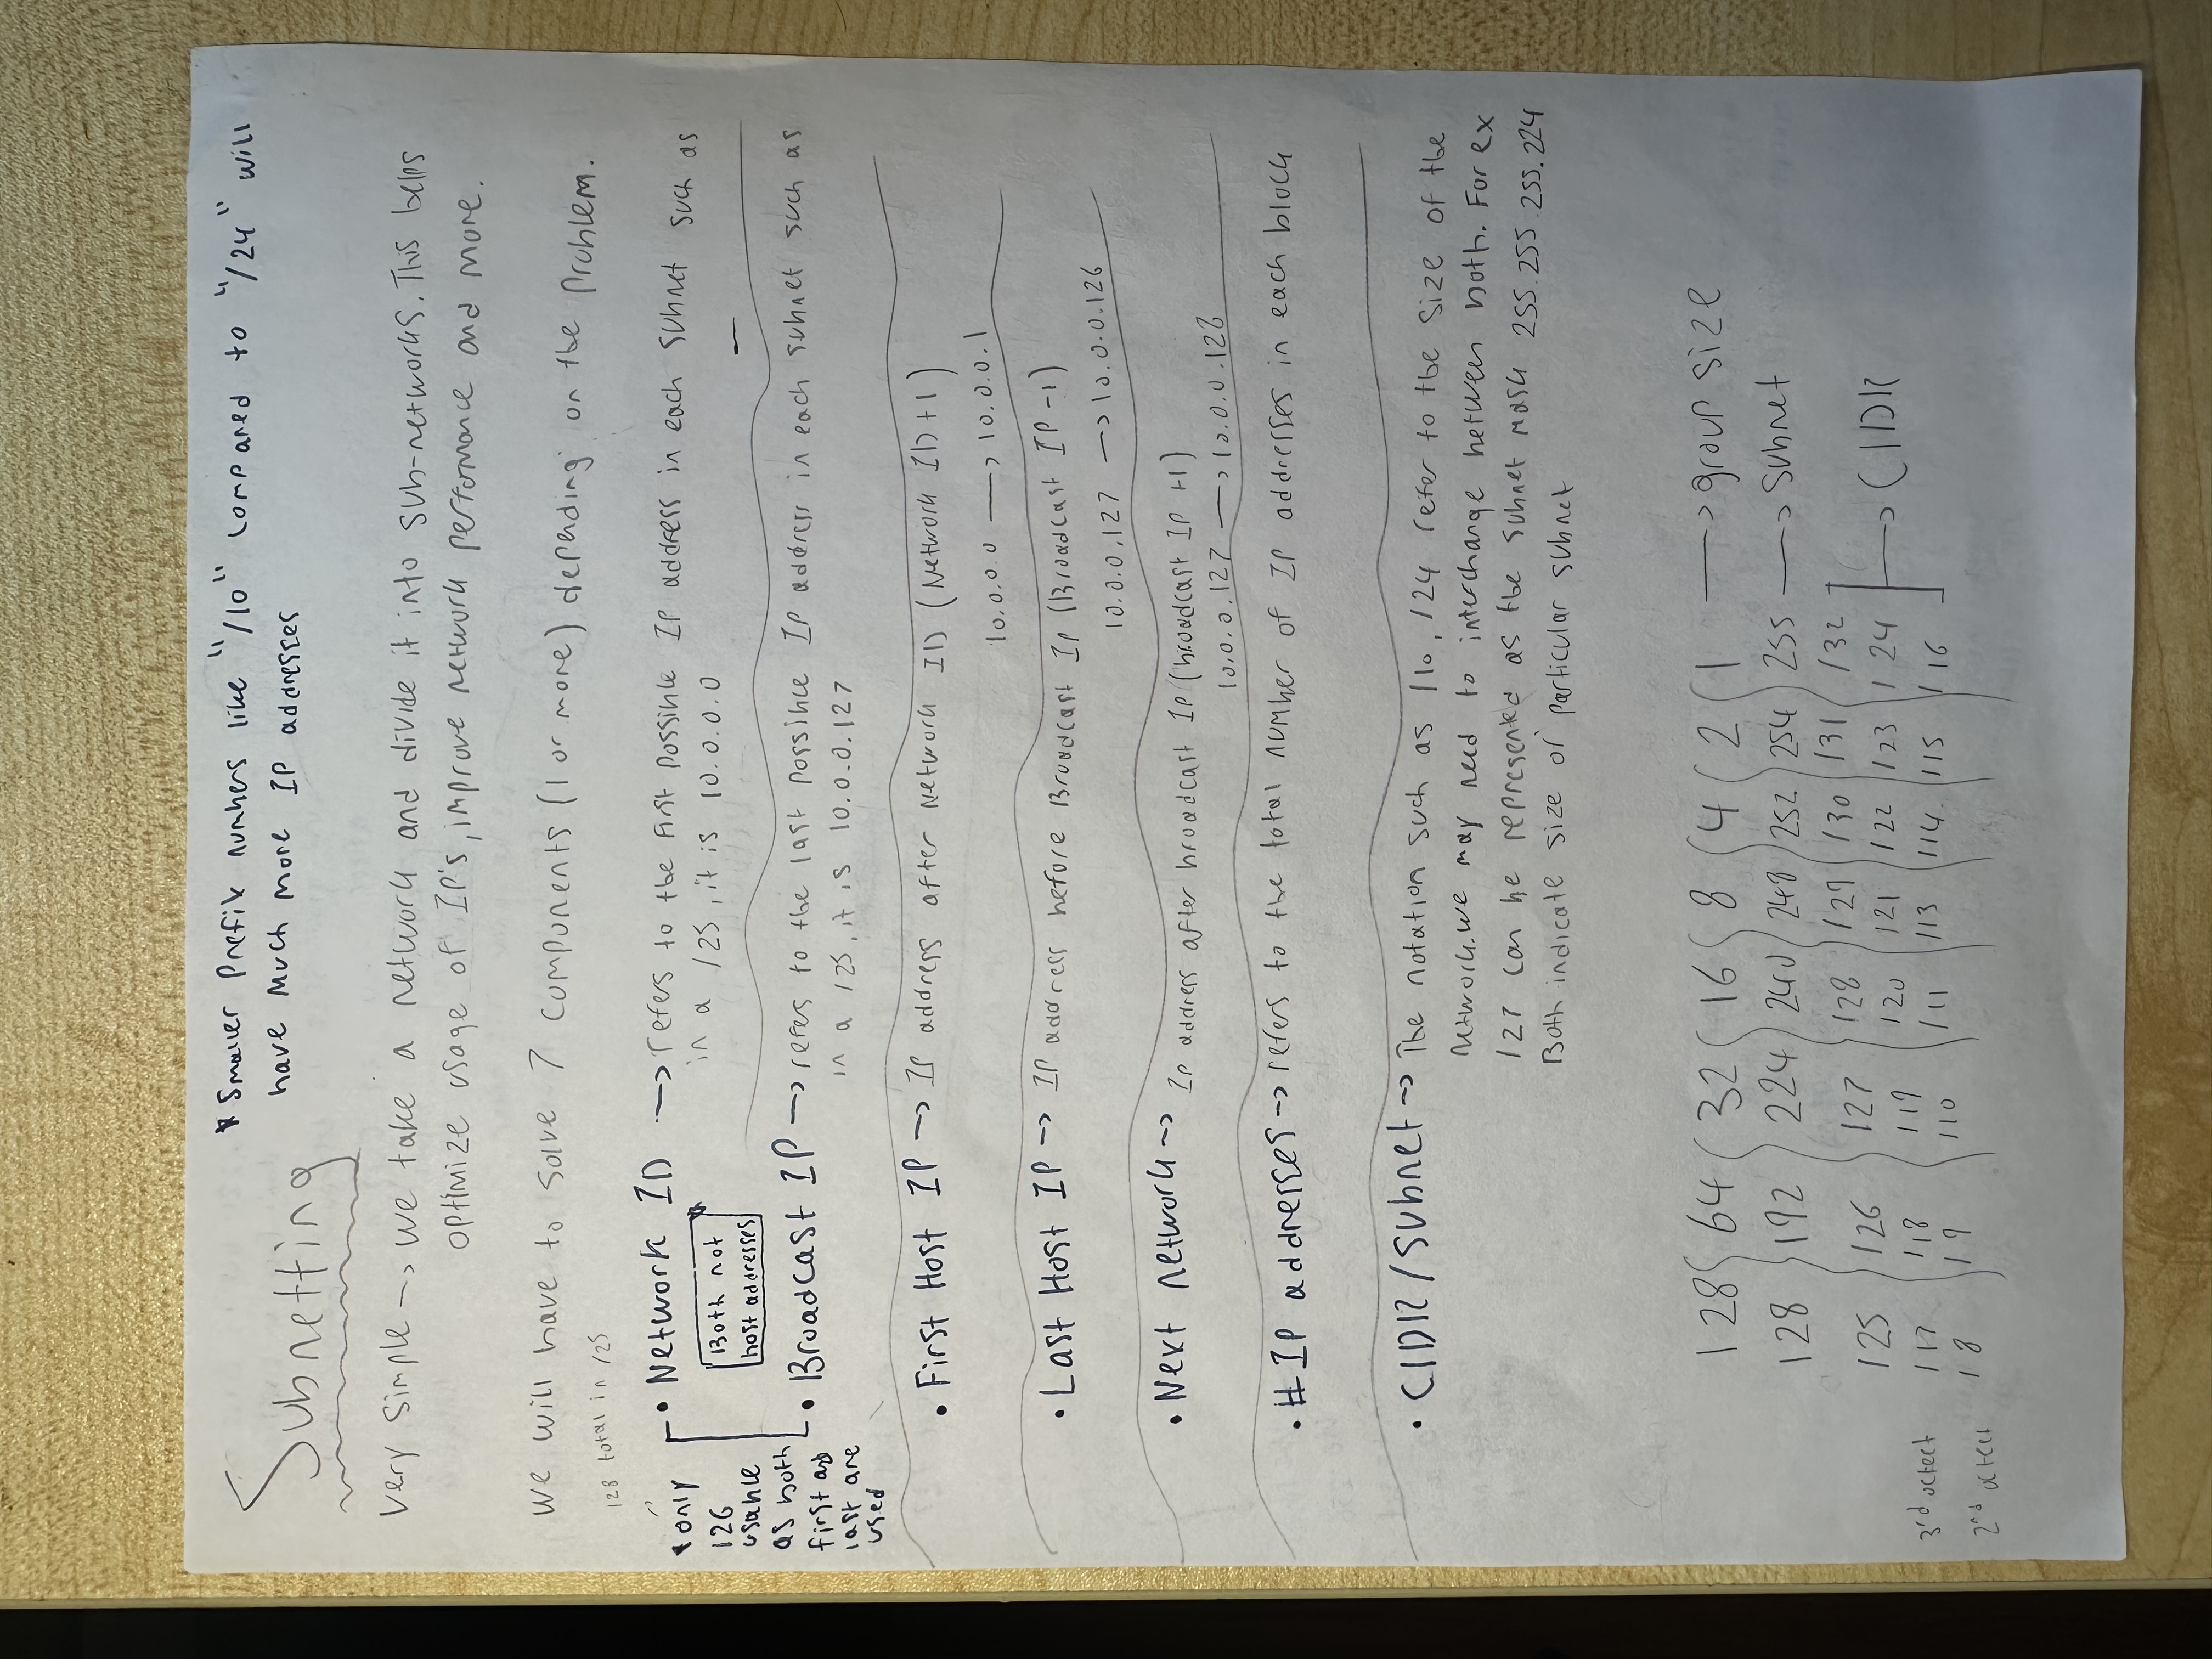 * Smaller Prefix numbers like "/10" compared to "/24" will
have Much more IP addresses
Subnetting
Very simple -> we take a network and divide it into sub-networks. This helps
optimize usage of IP's, improve network perfomance and more.
We will have to solve 7 components (1 or more) depending on the problem.
128 total in /25
• Network ID -> refers to the first possible IP address in each subnet such as
in a /25, it is 10.0.0.0
* only
126
usable
as both
first and
last are
used
Both not
host addresses
• Broadcast IP -> refers to the last possible IP address in each subnet such as
in a /25, it is 10.0.0.127
• First Host IP -> IP address after Network ID (Network ID +1)
10.0.0.0 -> 10.0.0.1
• Last Host IP -> IP address before Broadcast IP (Broadcast IP -1)
10.0.0.127 -> 10.0.0.126
• Next network -> IP address after broadcast IP (broadcast IP +1)
10.0.0.127 -> 10.0.0.128
• # IP addresses -> refers to the total number of IP addresses in each block
• CIDR/Subnet -> The notation such as /10, /24 refer to the size of the
network. We may need to interchange between both. For ex
/27 can be represented as the subnet mask 255.255.255.224
Both indicate size of particular subnet
128 64 32 16 8 4 2 1 -> group size
128 192 224 240 248 252 254 255 -> subnet
/25 /26 /27 /28 /29 /30 /31 /32
/17 /18 /19 /20 /21 /22 /23 /24 -> CIDR
3rd octect
/8 /9 /10 /11 /13 /114. /15 /16
2nd octect